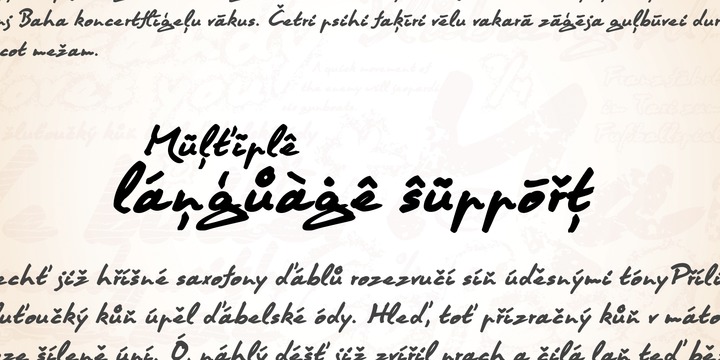 Baha koncertflīģeļu vākus. Četri psihi faķīri vēlu vakarā zāģēja guļbūvei
mežam.
Mũļťĩplê
láņģůàġê ŝũppōřţ
již hříšné saxofony ďáblů rozezvučí síň úděsnými tóny Příli
kůň úpěl ďábelské ódy. Hleď, toť přízračný kůň v máto
šíleně úpí. Ó, náhlý déšť již zvířil prach a čilá laň teď